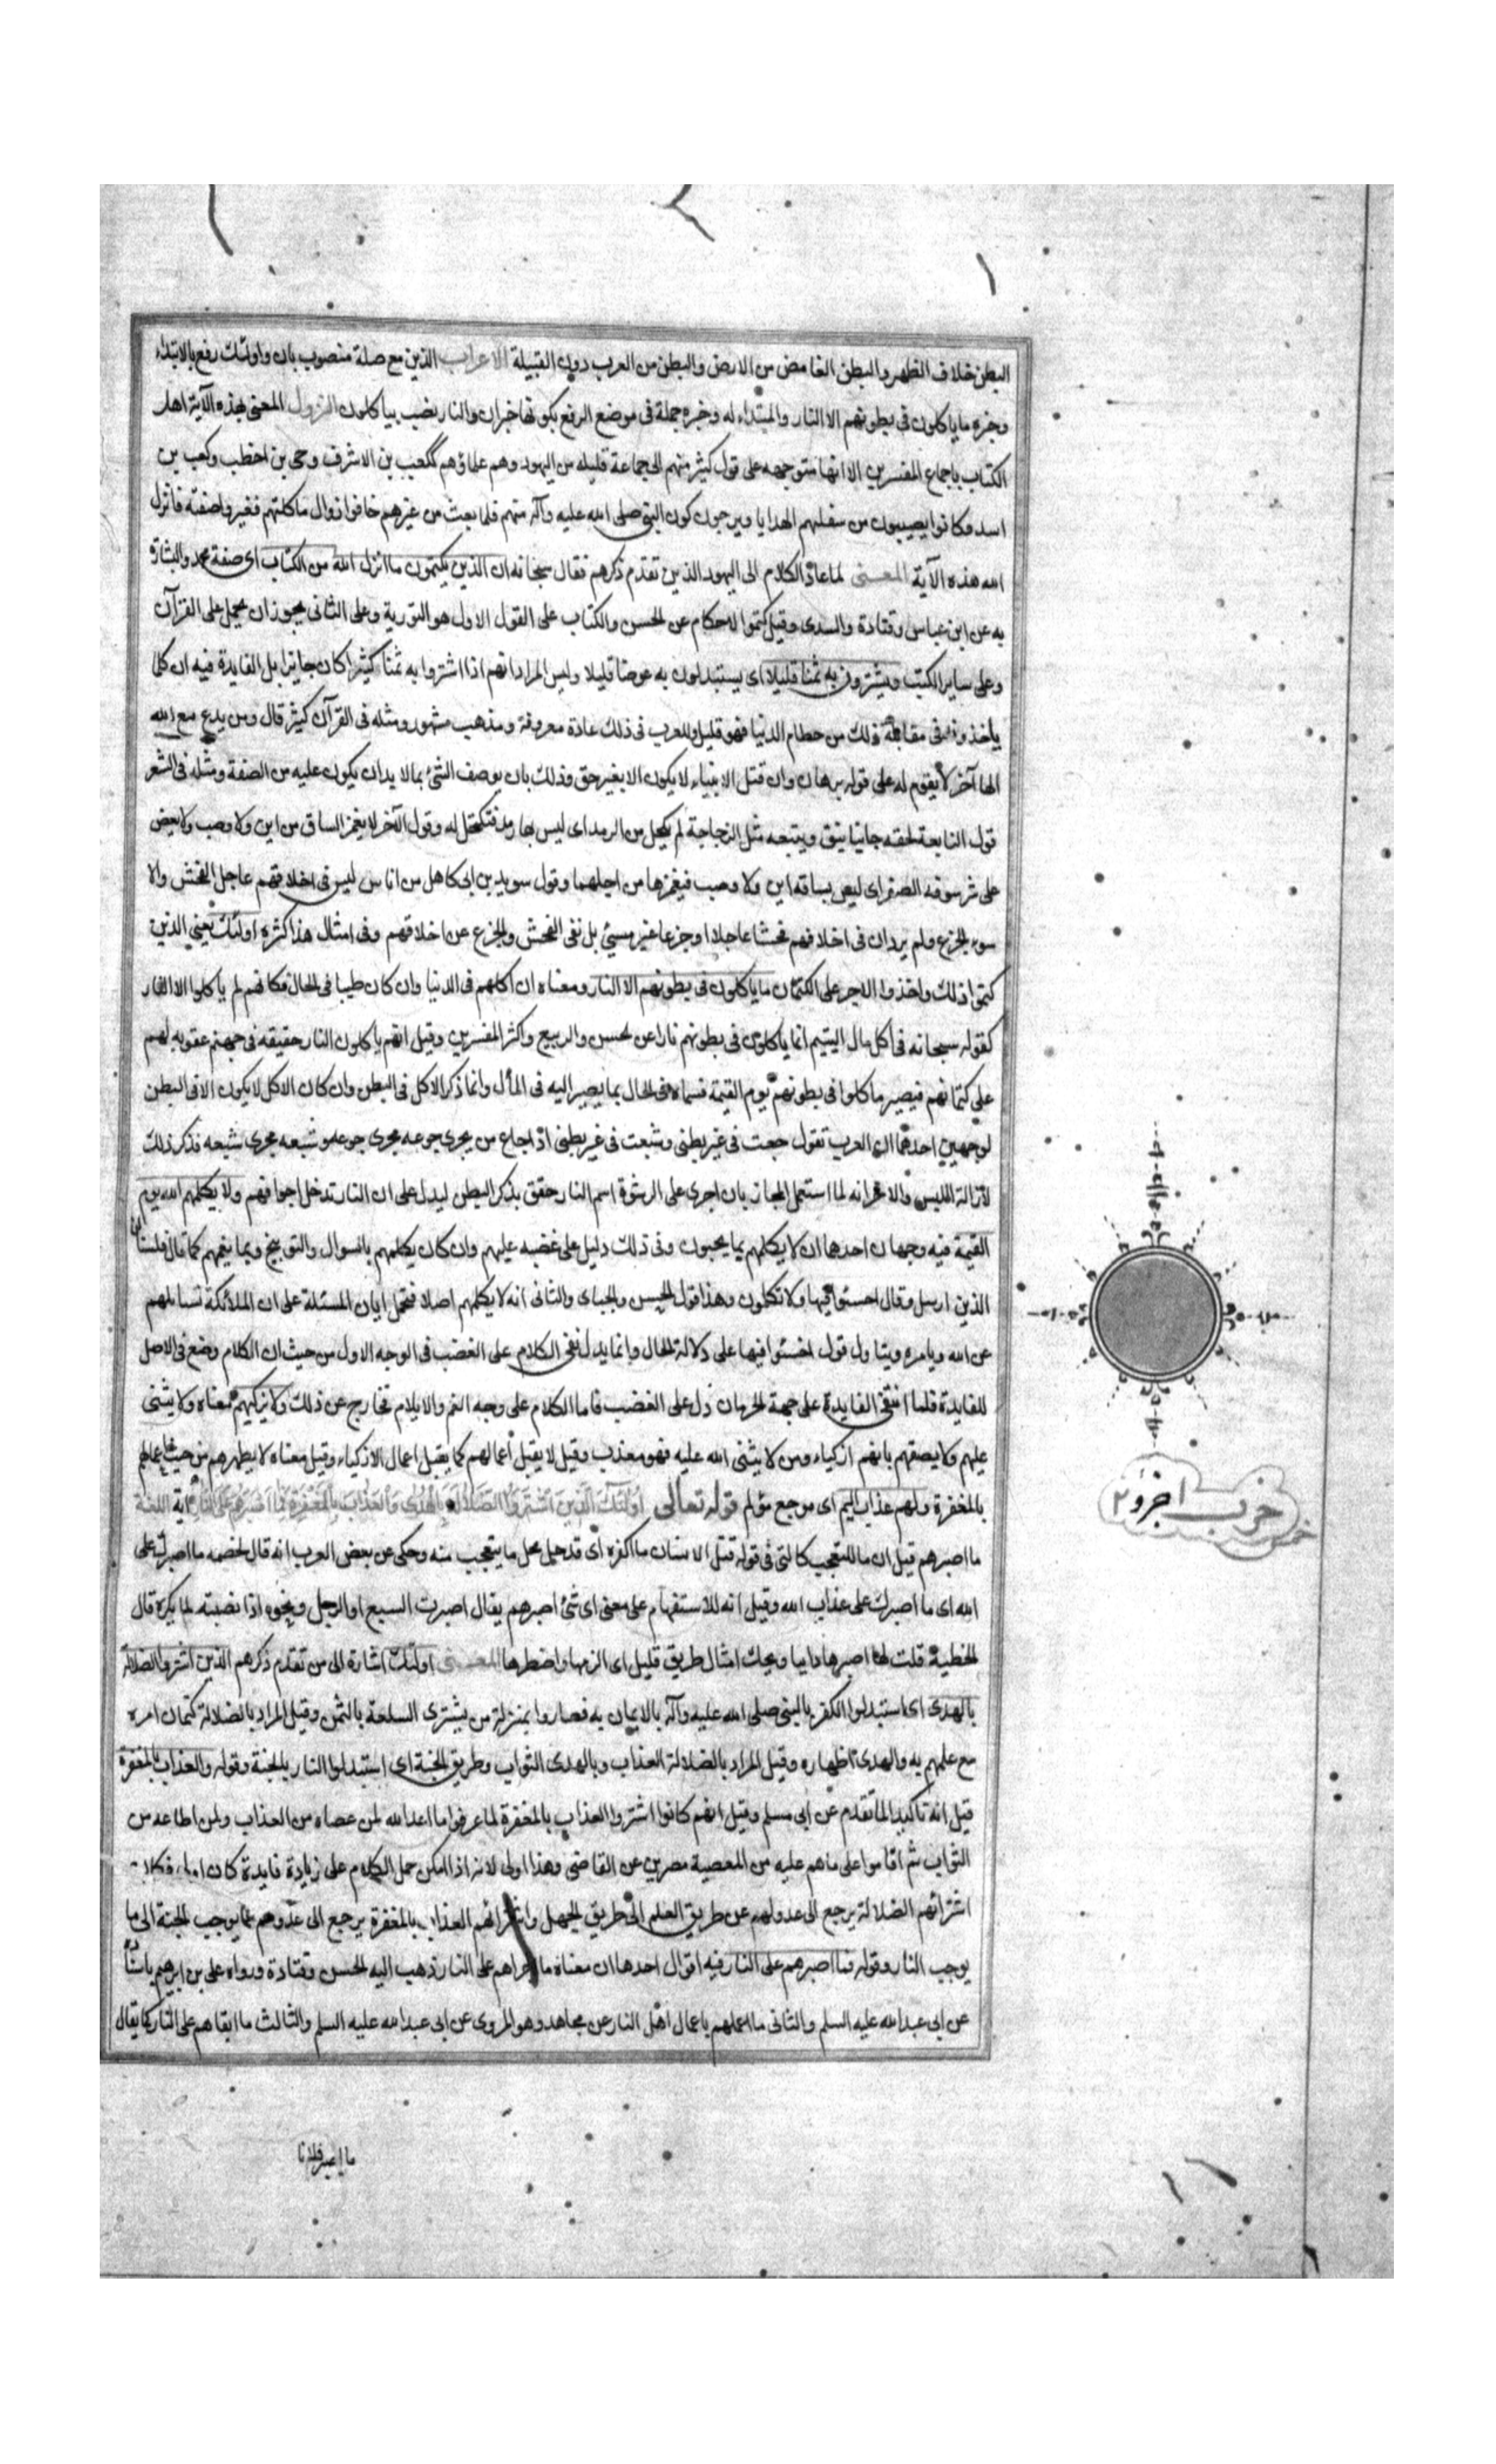 البطن خلاف الظهر والبطن الغامض من الارض والبطن من العرب دون القبيلة الاعراب الذين مع صلة منصوب بان واولئك رفع بالابتداء
وخبره ما ياكلون فى بطونهم الا النار والمبتداء له وخبره جملة فى موضع الرفع بكونها خبران والنار نصب بياكلون النزول المعنى بهذه الآية اهل
الكتاب باجماع المفسرين الا انها متوجهه على قول كثير منهم الى جماعة قليله من اليهود وهم علماؤهم ككعب بن الاشرف وحى بن اخطب وكعب بن
اسد وكانوا يصيبون من سفلتهم الهدايا ويرجون كون النبى صلى الله عليه وآله منهم فلما بعث من غيرهم خافوا زوال ماكلتهم فغيروا صفته فانزل
الله هذه الآية المعنى لما عاد الكلام الى اليهود الذين تقدم ذكرهم فقال سبحانه ان الذين يكتمون ما انزل الله من الكتاب اى صفة محمد والبشارة
به عن ابن عباس وقتادة والسدى وقيل كتموا الاحكام عن الحسن والكتاب على القول الاول هو التورية وعلى الثانى يجوز ان يحمل على القرآن
وعلى ساير الكتب ويشترون به ثمنا قليلا اى يستبدلون به عوضا قليلا وليس المراد انهم اذا اشتروا به ثمنا كثيرا كان جايزا بل الفايدة فيه ان كلما
ياخذونه فى مقابلة ذلك من حطام الدنيا فهو قليل وللعرب فى ذلك عادة معروفة ومذهب مشهور ومثله فى القرآن كثير قال ومن يدع مع الله
الها آخر لا يقوم له على قوله برهان وان قتل الانبياء لا يكون الا بغير حق وذلك بان يوصف الشئ بما لا بد ان يكون عليه من الصفة ومثله فى الشعر
قول النابعة لحقه جانبا نيق ويتبعه مثل الزجاجة لم تكحل من الرمد اى ليس بها رمد فتكتحل له وقول الآخر لا يغمز الساق من اين ولا وصب ولا يعض
على شرسوفه الصفر اى ليس بساقه اين ولا وصب فيغمزها من اجلهما وقول سويد بن ابى كاهل من اناس ليس فى اخلاقهم عاجل الفحش ولا
سوء الجزع ولم يرد ان فى اخلاقهم فحشا عاجلا او جزعا غير مسئ بل نفى الفحش والجزع عن اخلاقهم وفى امثال هذا كثره اولئك يعنى الذين
كتموا ذلك واخذوا الاجر على الكتمان ما ياكلون فى بطونهم الا النار ومعناه ان اكلهم فى الدنيا وان كان طيبا فى الحال فكانهم لم ياكلوا الا النار
كقوله سبحانه فى اكل مال اليتيم انما ياكلون فى بطونهم نارا عن الحسن والربيع واكثر المفسرين وقيل انهم ياكلون النار حقيقه فى جهنم عقوبه لهم
على كتمانهم فيصير ما كلوا فى بطونهم يوم القيمة فسماه فى الحال بما يصير اليه فى المأل وانما ذكر الاكل فى البطن وان كان الاكل لا يكون الا فى البطن
لوجهين احدهما ان العرب تقول جعت فى غير بطنى وشبعت فى غير بطنى اذا جاع من يجرى جوعه مجرى جوعه وشبعه مجرى شبعه فذكر ذلك
لازالة اللبس والاخر انه لما استعمل المجاز بان اجرى على الرشوة اسم النار حقق بذكر البطن ليدل على ان النار تدخل اجوافهم ولا يكلمهم الله يوم
القيمة فيه وجهان احدهما ان لا يكلمهم بما يحبون وفى ذلك دليل على غضبه عليهم وان كان يكلمهم بالسوال والتوبيخ وبما يغمهم كما قال فلنسألن
الذين ارسل وقال اخسئوا فيها ولا تكلمون وهذا قول الحسن والجباى والثانى انه لا يكلمهم اصلا فتحمل ايات المسئلة على ان الملائكة تسايلهم
عن الله وبامره ويتاول قول اخسئوا فيها على دلالة الحال وانما يدل نفى الكلام على الغضب فى الوجه الاول من حيث ان الكلام وضع فى الاصل
للفايدة فلما انتفى الفايدة على جهة الحرمان دل على الغضب فاما الكلام على وجه الغم والايلام فخارج عن ذلك ولا يزكيهم معناه ولا يثنى
عليهم ولا يصفهم بانهم ازكياء ومن لا يثنى الله عليه فهو معذب وقيل لا يقبل اعمالهم كما يقبل اعمال الازكياء وقيل معناه لا يطهرهم من خبث اعمالهم
بالمغفرة ولهم عذاب اليم اى موجع مؤلم قوله تعالى اولئك الذين اشتروا الضلالة بالهدى والعذاب بالمغفرة فما اصبرهم على النار آية اللغة
ما اصبرهم قيل ان ما للتعجب كالتى فى قوله قتل الانسان ما اكفره اى قد حل محل ما يتعجب منه وحكى عن بعض العرب انه قال لخصمه ما اصبرك على
الله اى ما اصبرك على عذاب الله وقيل انه للاستفهام على معنى اى شئ اصبرهم يقال اصبرت السبع او الرجل ونحوه اذا نصبته لما يكره قال
الحطية قلت لها اصبرها دايبا ويحك امثال طريف قليل اى الزمها واضطرها المعنى اولئك اشارة الى من تقدم ذكرهم الذين اشتروا الضلالة
بالهدى اى استبدلوا الكفر بالنبى صلى الله عليه وآله بالايمان به فصاروا بمنزلة من يشترى السلعة بالثمن وقيل المراد بالضلالة كتمان امره
مع علمهم به والهدى اظهاره وقيل المراد بالضلالة العذاب وبالهدى الثواب وطريق الجنة اى استبدلوا النار بالجنة وقوله والعذاب بالمغفرة
قيل انه تاكيد لما تقدم عن ابى مسلم وقيل انهم كانوا اشتروا العذاب بالمغفرة لما عرفوا ما اعد الله لمن عصاه من العذاب ولمن اطاعه من
الثواب ثم اقاموا على ما هم عليه من المعصية مصرين عن القاضى وهذا اولى لانه اذا امكن حمل الكلام على زيادة فايدة كان اولى فكان
اشترائهم الضلالة يرجع الى عدولهم عن طريق العلم الى طريق الجهل واشترائهم العذاب بالمغفرة يرجع الى عدولهم عما يوجب الجنة الى ما
يوجب النار وقوله فما اصبرهم على النار فيه اقوال احدها ان معناه ما اجراهم على النار ذهب اليه الحسن وقتادة ورواه على بن ابرهيم باسناده
عن ابى عبد الله عليه السلم والثانى ما اعملهم باعمال اهل النار عن مجاهد وهو المروى عن ابى عبد الله عليه السلم والثالث ما ابقاهم على النار كما يقال
ما اصبر فلانا
حزب